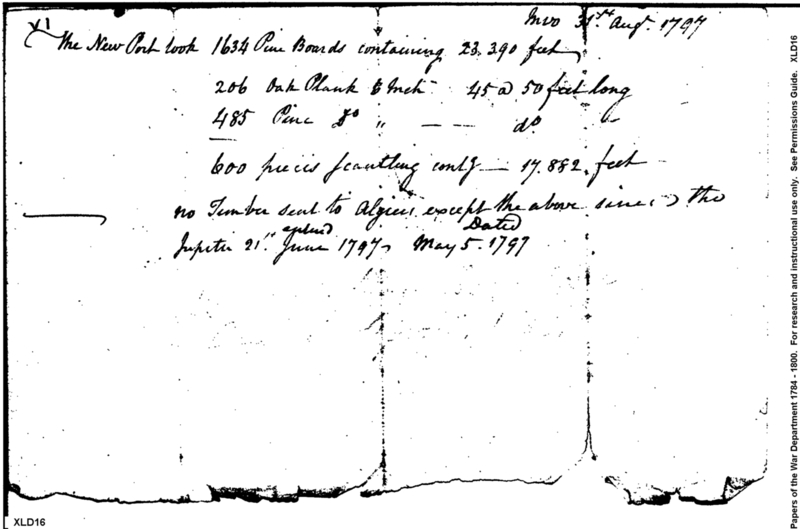 V1
Invo 31st Augt. 1797
The New Port took 1634 Pine Boards containing 23.390 feet
206 Oak Plank 6 Inch 45 a 50 feet long
485 Pine Do " — — do "
600 pieces Scantling contg — 17.882. feet
no Timber sent to Algiers except the above since the
Jupiter 21st June 1797 May 5. 1797
Dated
XLD16
Papers of the War Department 1784 - 1800. For research and instructional use only. See Permissions Guide. XLD16